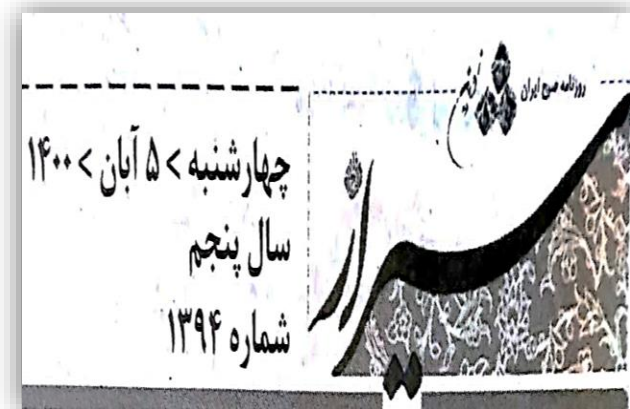 روزنامه صبح ایران
نوین
شیراز
چهارشنبه > ۵ آبان > ۱۴۰۰
سال پنجم
شماره ۱۳۹۴